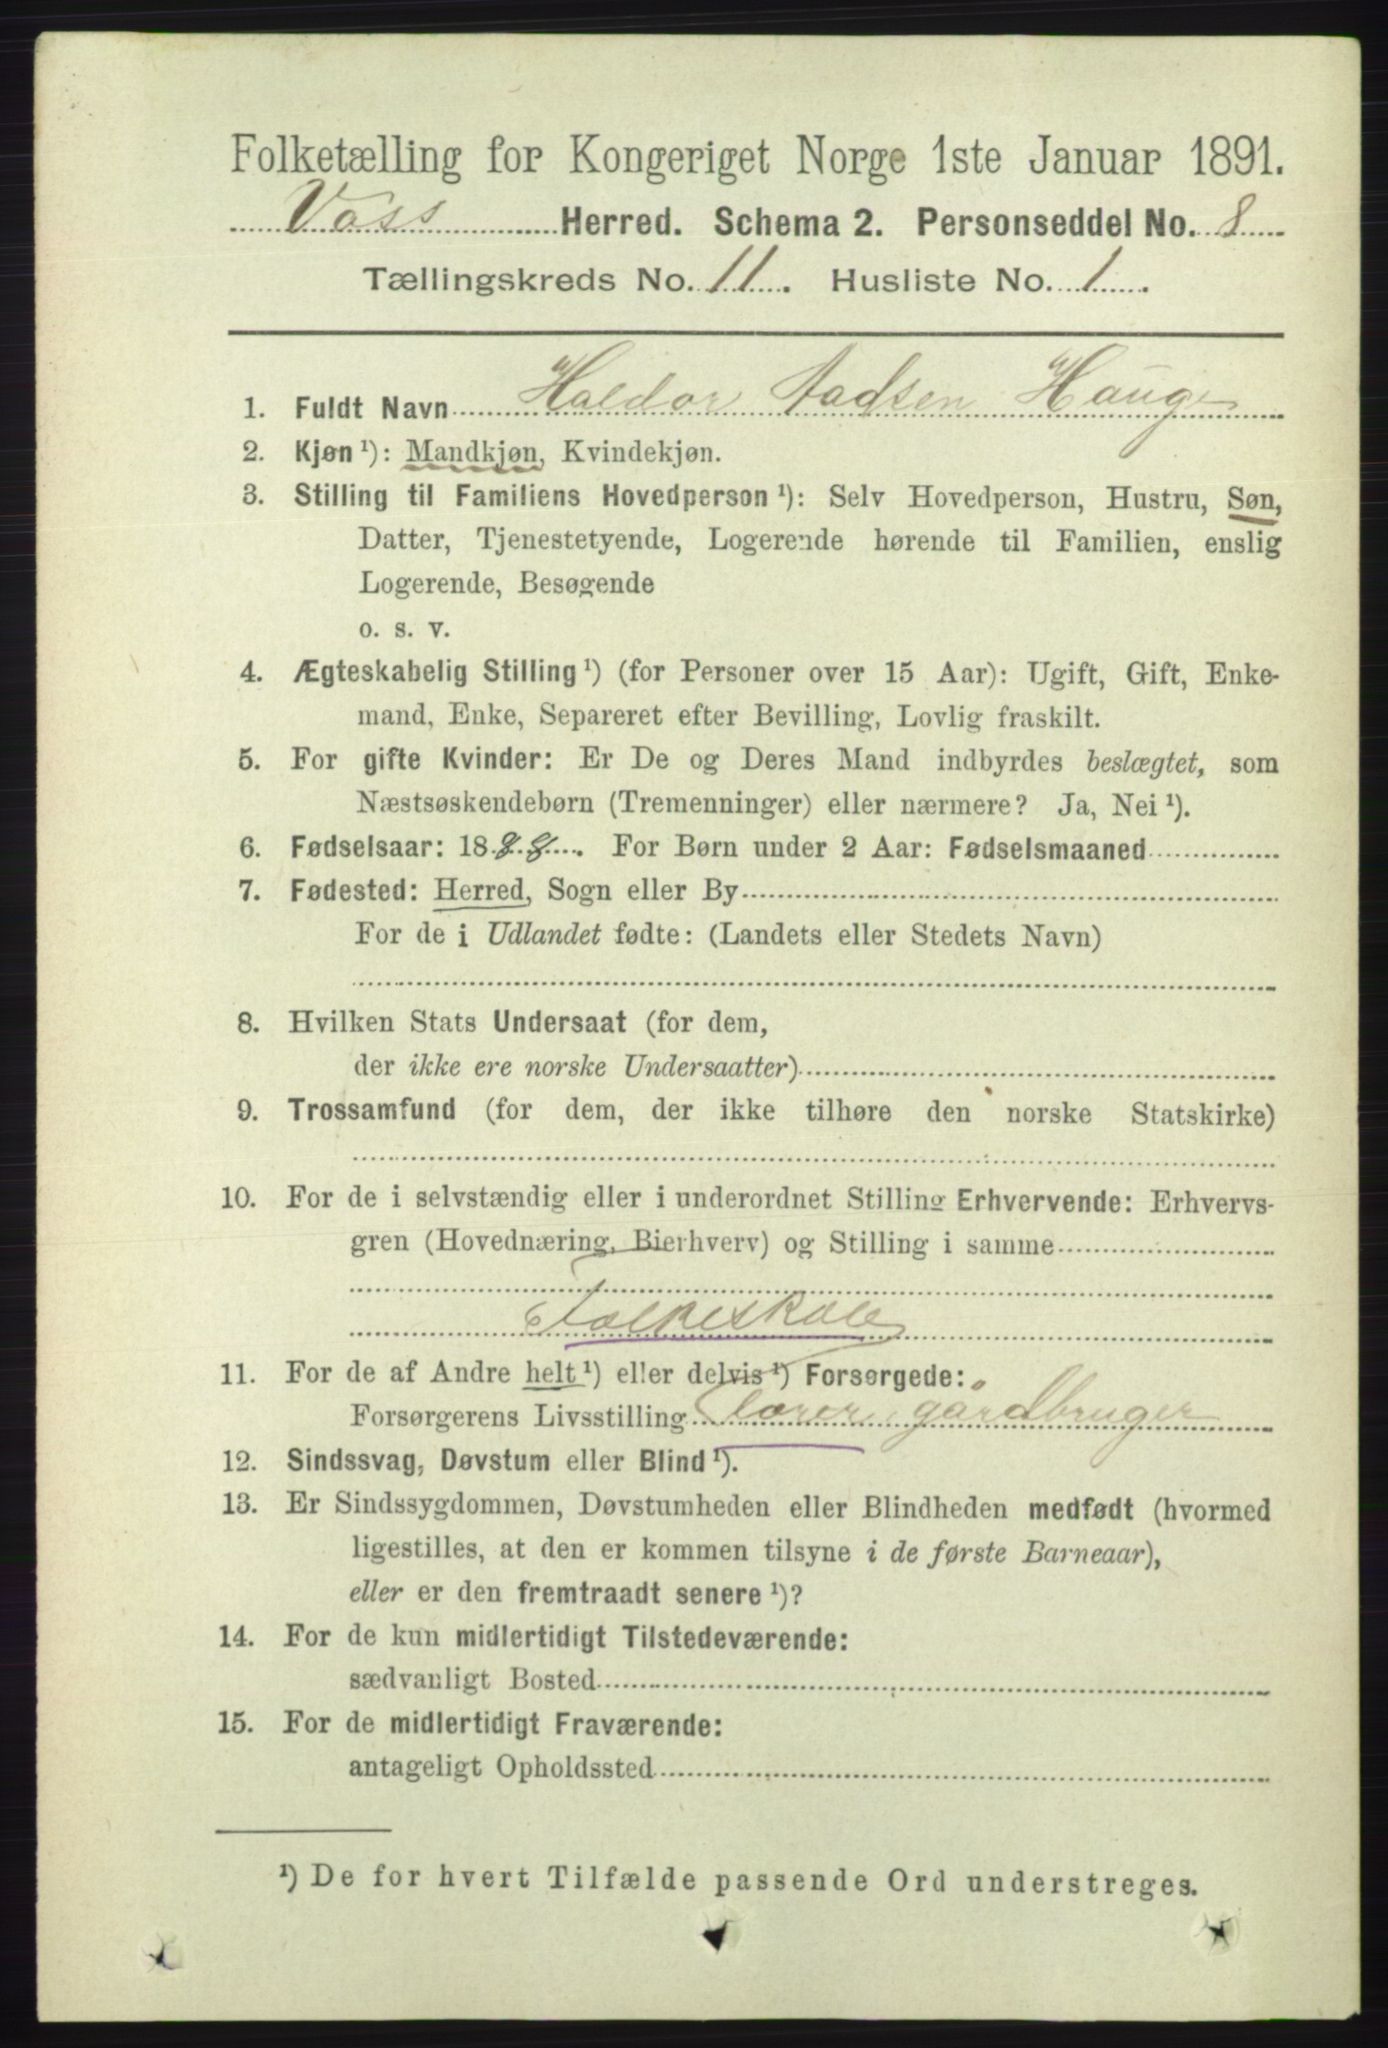 Folketælling for Kongeriget Norge 1ste Januar 1891.
Voss Herred. Schema 2. Personseddel No. 8
Tællingskreds No. 11. Husliste No. 1.
1. Fuldt Navn Haldor Aadsen Hauge
2. Kjøn ¹): Mandkjøn, Kvindekjøn.
3. Stilling til Familiens Hovedperson ¹): Selv Hovedperson, Hustru, Søn,
Datter, Tjenestetyende, Logerende hørende til Familien, enslig
Logerende, Besøgende
o. s. v.
4. Ægteskabelig Stilling ¹) (for Personer over 15 Aar): Ugift, Gift, Enke-
mand, Enke, Separeret efter Bevilling, Lovlig fraskilt.
5. For gifte Kvinder: Er De og Deres Mand indbyrdes beslægtet, som
Næstsøskendebørn (Tremenninger) eller nærmere? Ja, Nei ¹).
6. Fødselsaar: 1888. For Børn under 2 Aar: Fødselsmaaned
7. Fødested: Herred, Sogn eller By
For de i Udlandet fødte: (Landets eller Stedets Navn)
8. Hvilken Stats Undersaat (for dem,
der ikke ere norske Undersaatter)
9. Trossamfund (for dem, der ikke tilhøre den norske Statskirke)
10. For de i selvstændig eller i underordnet Stilling Erhvervende: Erhvervs-
gren (Hovednæring, Bierhverv) og Stilling i samme
Folkeskole
11. For de af Andre helt ¹) eller delvis ¹) Forsørgede:
Forsørgerens Livsstilling lærer, gårdbruger
12. Sindssvag, Døvstum eller Blind ¹).
13. Er Sindssygdommen, Døvstumheden eller Blindheden medfødt (hvormed
ligestilles, at den er kommen tilsyne i de første Barneaar),
eller er den fremtraadt senere ¹)?
14. For de kun midlertidigt Tilstedeværende:
sædvanligt Bosted
15. For de midlertidigt Fraværende:
antageligt Opholdssted
¹) De for hvert Tilfælde passende Ord understreges.